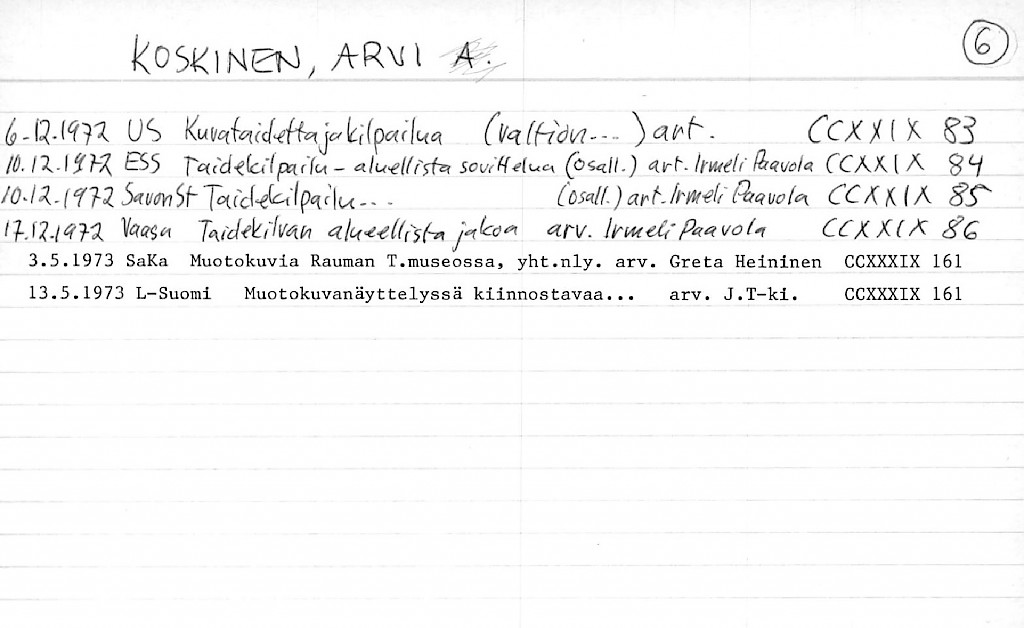 KOSKINEN, ARVI A. 6
6.12.1972 US Kuvataidetta ja kilpailua (valtion---) art. CCXXIX 83
10.12.1972 ESS Taidekilpailu - aluellista sovittelua (osall.) art. Irmeli Paavola CCXXIX 84
10.12.1972 SavonSt Taidekilpailu--- (osall.) art. Irmeli Paavola CCXXIX 85
17.12.1972 Vaasa Taidekilvan alueellista jakoa arv. Irmeli Paavola CCXXIX 86
3.5.1973 SaKa Muotokuvia Rauman T.museossa, yht.nly. arv. Greta Heininen CCXXXIX 161
13.5.1973 L-Suomi Muotokuvanäyttelyssä kiinnostavaa... arv. J.T-ki. CCXXXIX 161